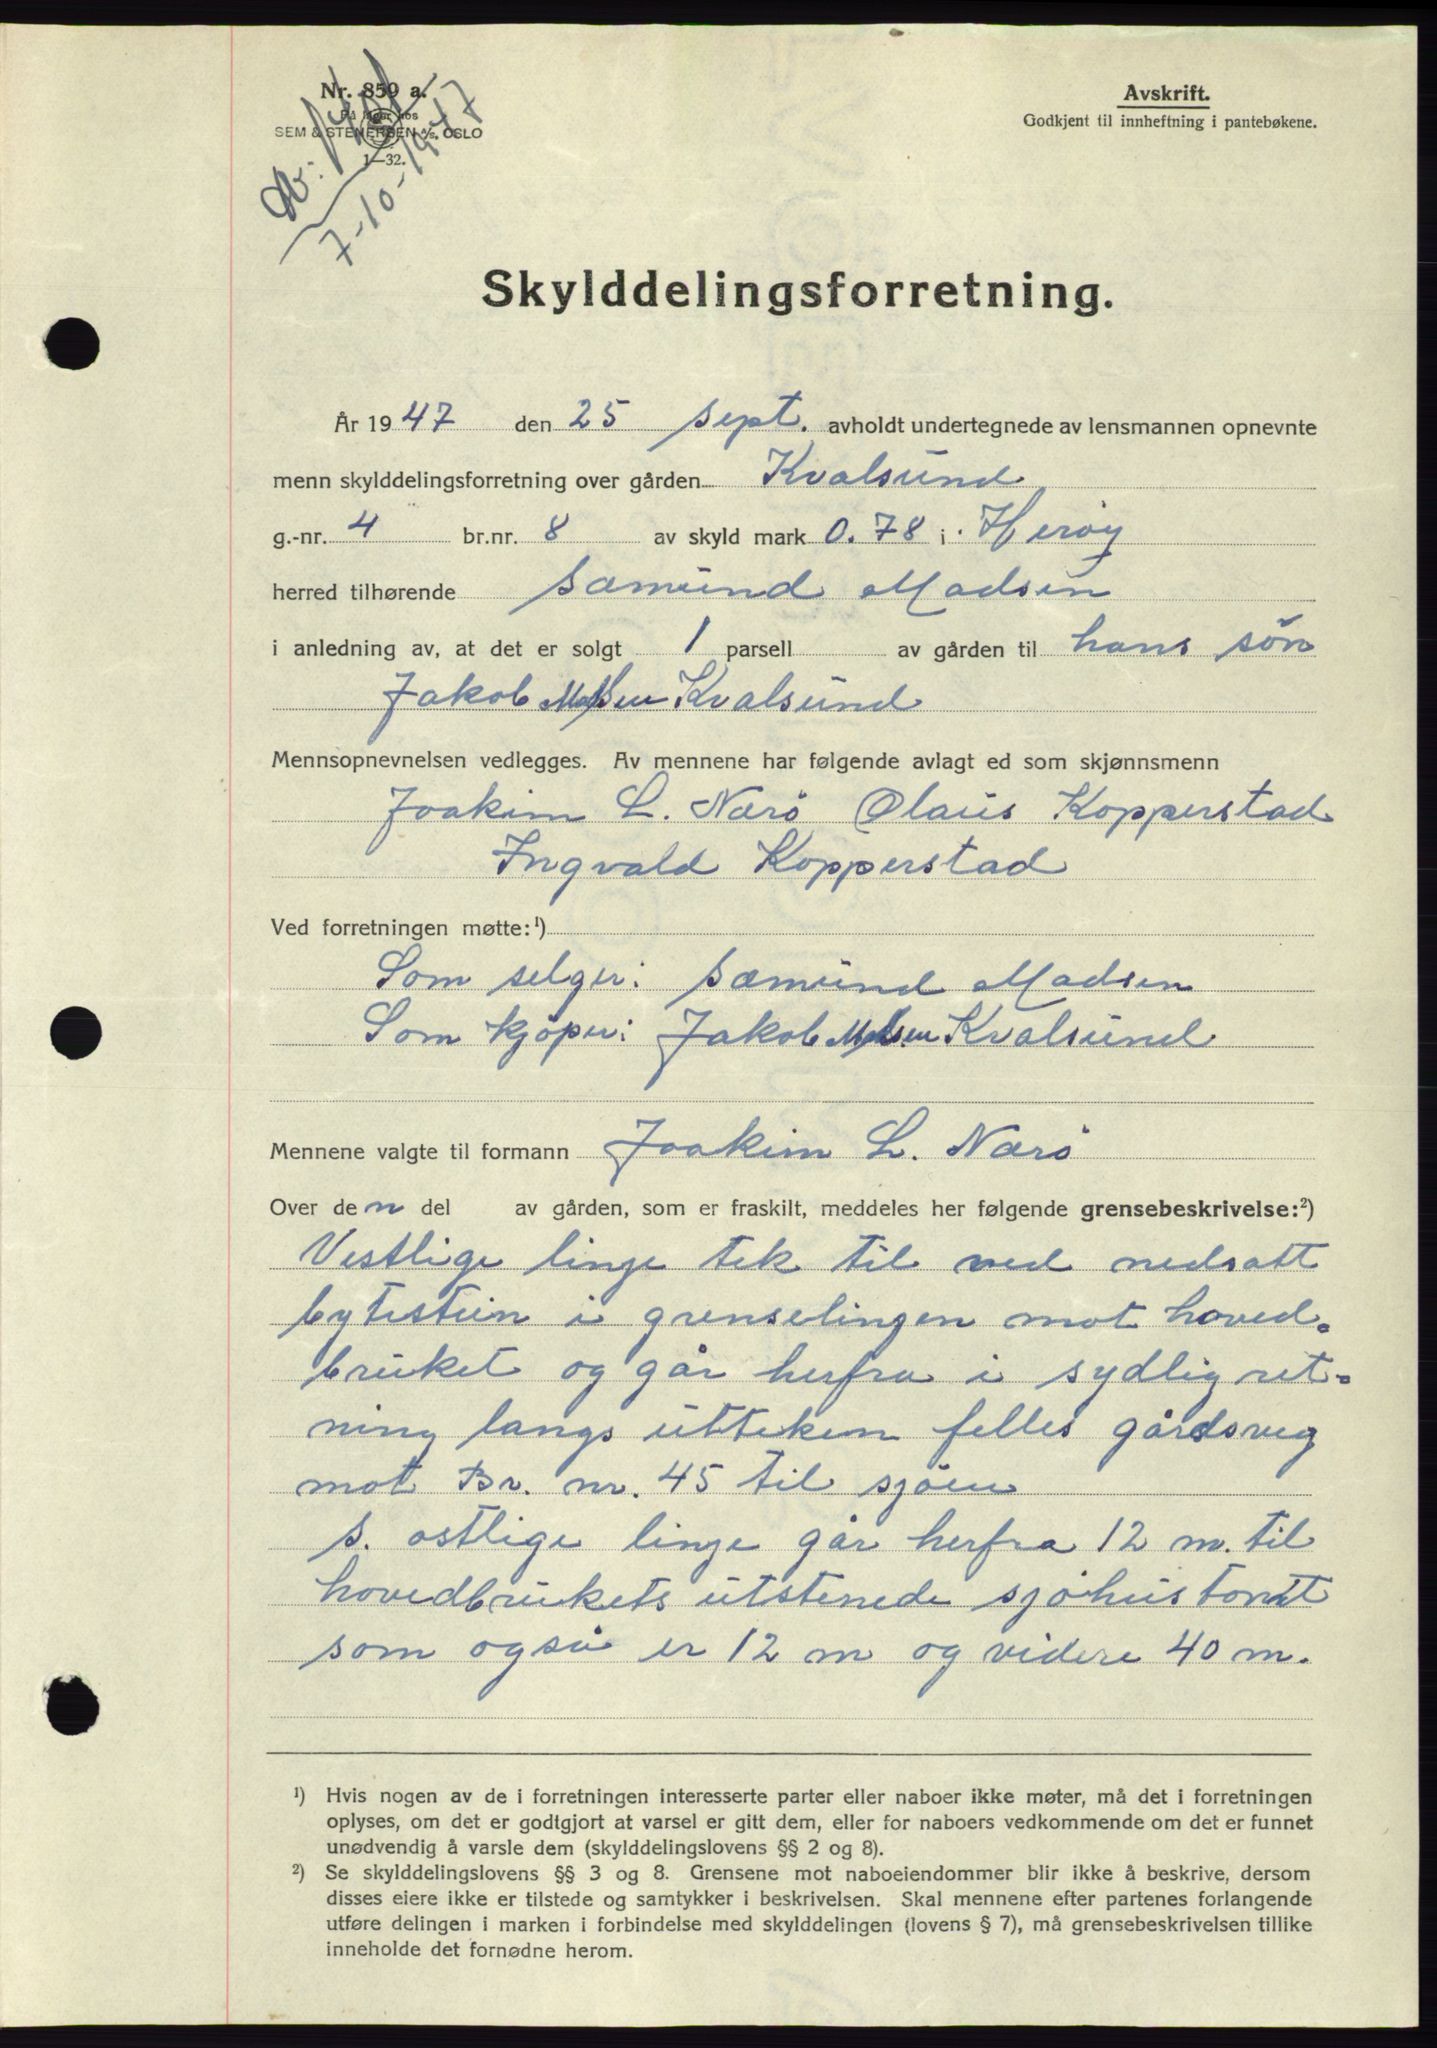 Nr. 859 a.
På lager hos
SEM & STENERSEN A/S, OSLO
1—32.
7-10-1947
Avskrift.
Godkjent til innheftning i pantebøkene.
Skylddelingsforretning.
År 1947 den 25 sept. avholdt undertegnede av lensmannen opnevnte
menn skylddelingsforretning over gården Kvalsund
g.-nr. 4 br.nr. 8 av skyld mark 0.78 i Herøy
herred tilhørende Sæmund Madsen
i anledning av, at det er solgt 1 parsell av gården til hans sön
Jakob Madsen Kvalsund
Mennsopnevnelsen vedlegges. Av mennene har følgende avlagt ed som skjønnsmenn
Joakim L. Nærö Olaus Kopperstad
Ingvald Kopperstad
Ved forretningen møtte:¹)
Som selger: Sæmund Madsen
Som kjöper: Jakob Madsen Kvalsund
Mennene valgte til formann Joakim L. Nærö
Over den del av gården, som er fraskilt, meddeles her følgende grensebeskrivelse:²)
Vestlige linje tek til ved nedsatt
bytestein i grenselinjen mot hoved-
bruket og går herfra i sydlig ret-
ning langs uttekem felles gårdsveg
mot Br. nr. 45 til sjöen
S. ostlige linje går herfra 12 m. til
hovedbrukets utstenede sjöhustomt
som også er 12 m og videre 40 m.
¹) Hvis nogen av de i forretningen interesserte parter eller naboer ikke møter, må det i forretningen
oplyses, om det er godtgjort at varsel er gitt dem, eller for naboers vedkommende om det er funnet
unødvendig å varsle dem (skylddelingslovens §§ 2 og 8).
²) Se skylddelingslovens §§ 3 og 8. Grensene mot naboeiendommer blir ikke å beskrive, dersom
disses eiere ikke er tilstede og samtykker i beskrivelsen. Skal mennene efter partenes forlangende
utføre delingen i marken i forbindelse med skylddelingen (lovens § 7), må grensebeskrivelsen tillike
inneholde det fornødne herom.